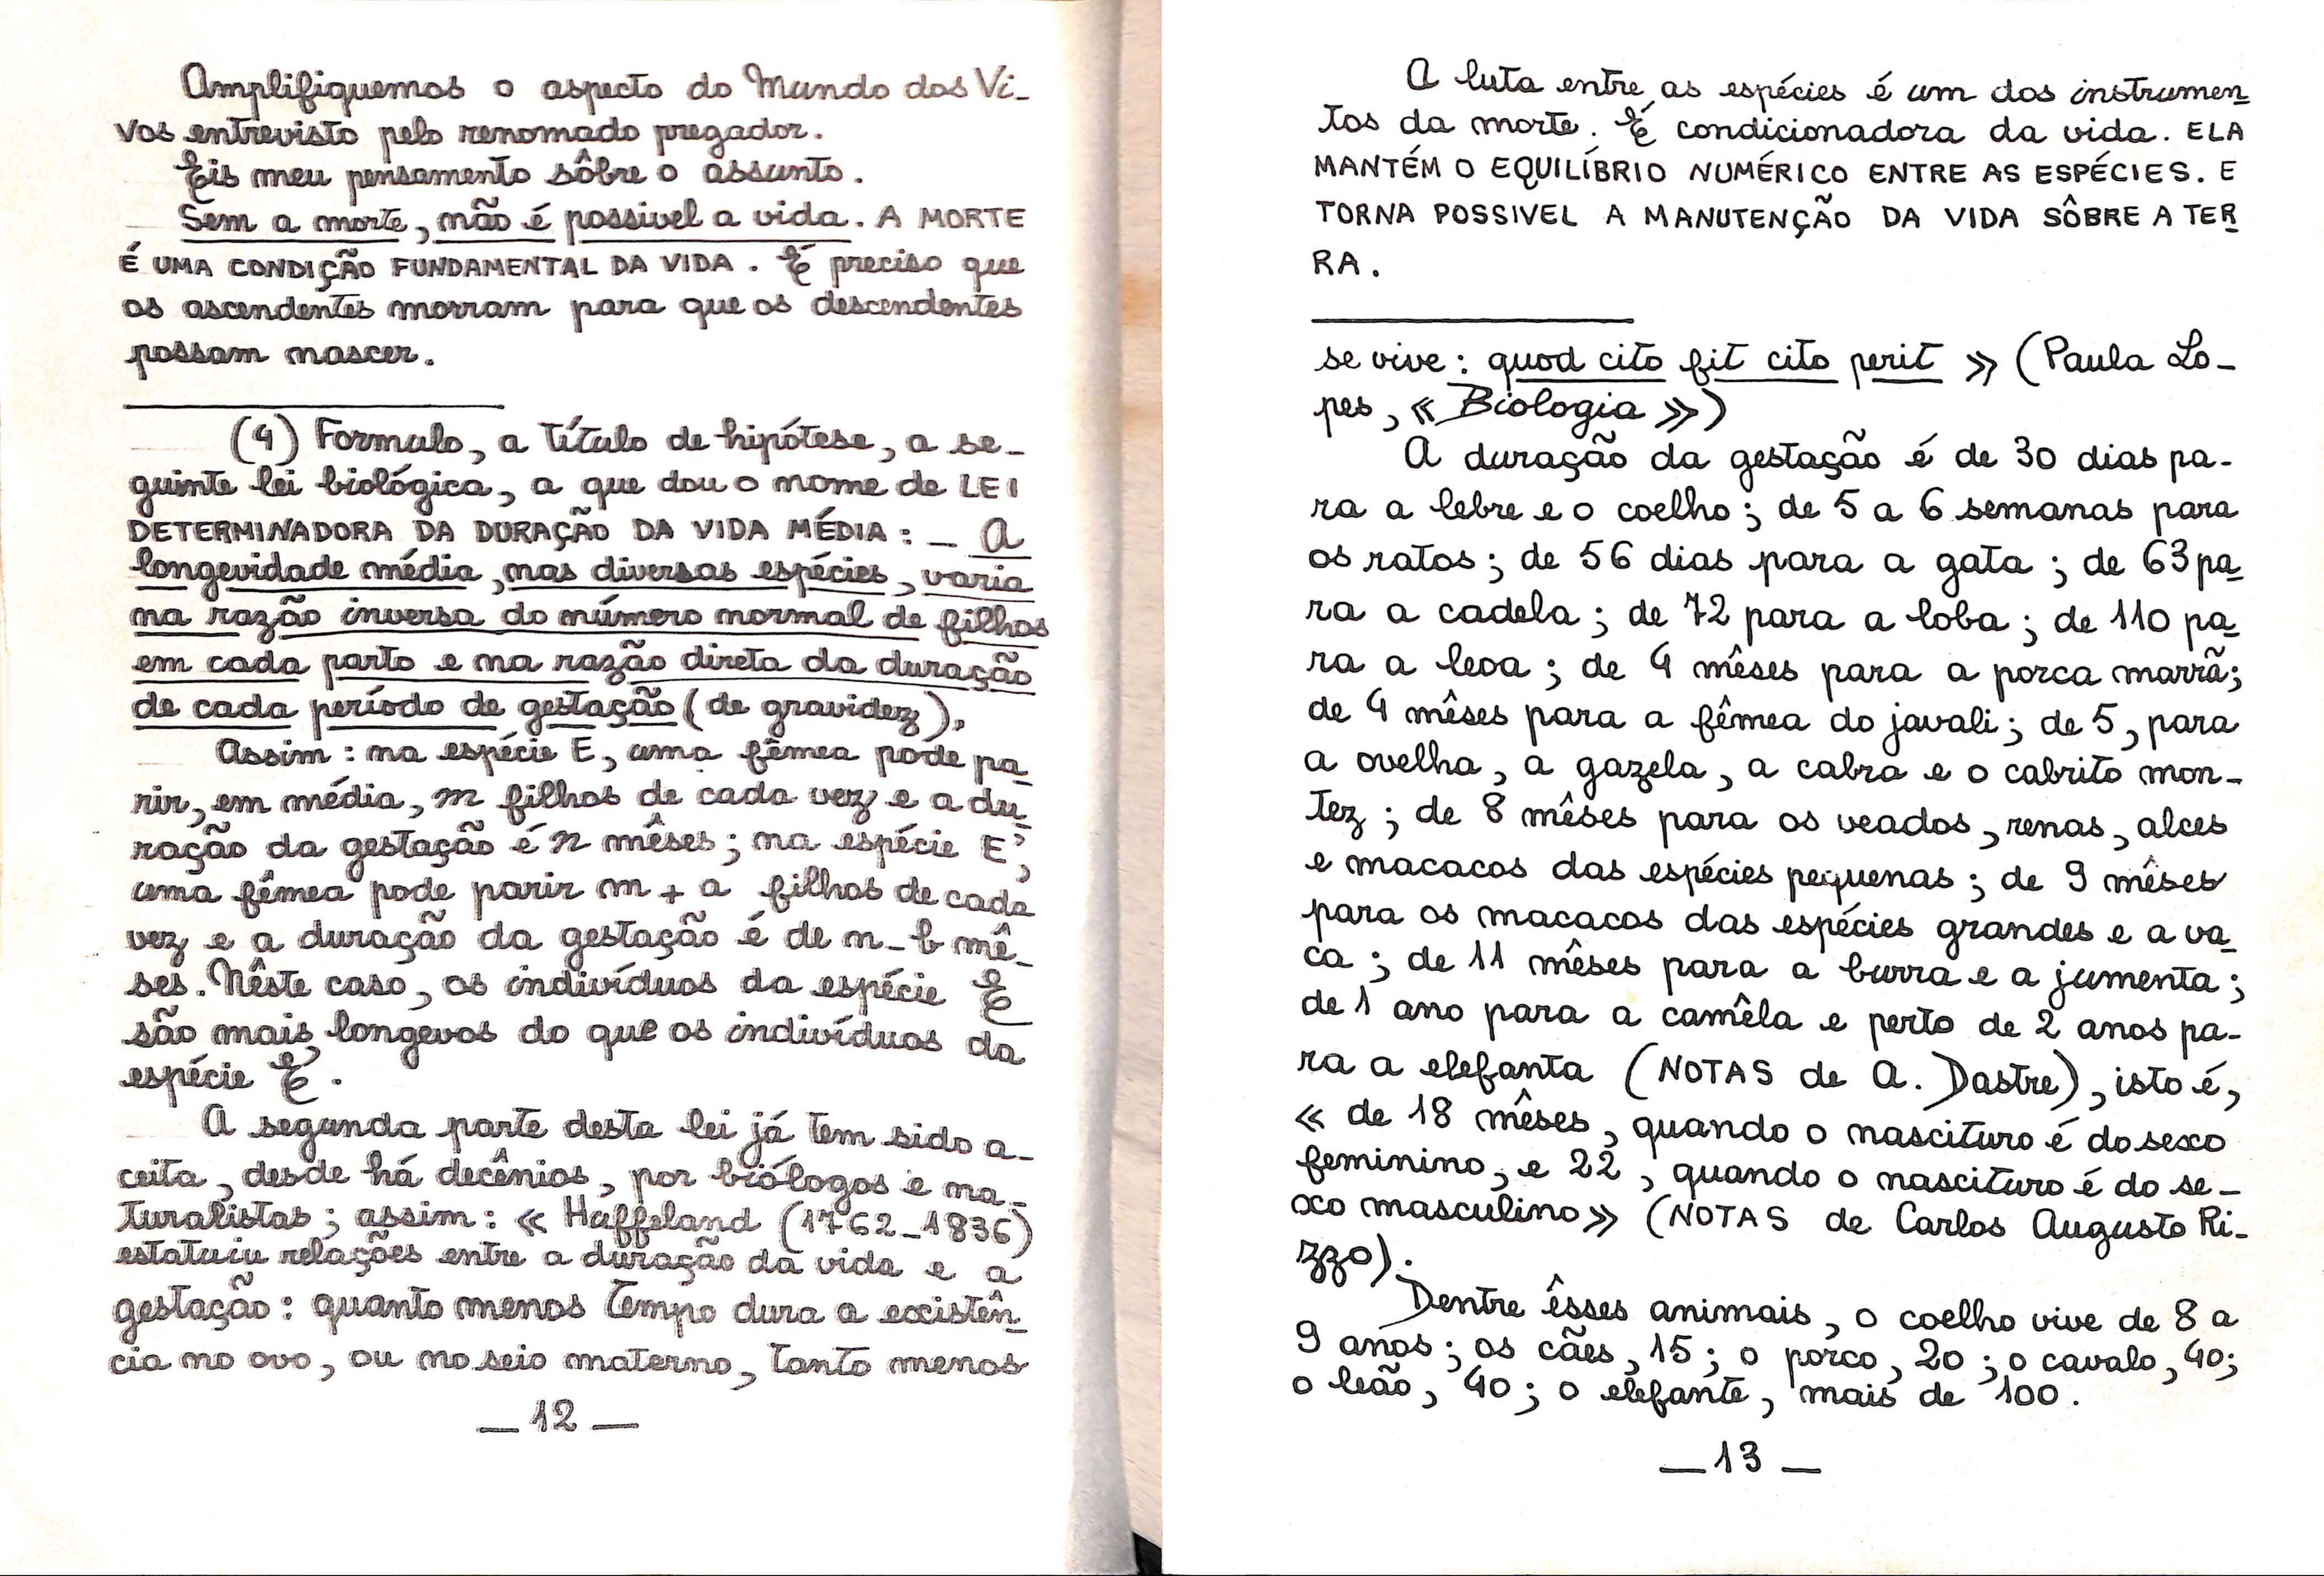 Amplifiquemos o aspecto do Mundo dos Vi-
vos entrevisto pelo renomado pregador.
Eis meu pensamento sôbre o assunto.
Sem a morte, não é possivel a vida. A MORTE
É UMA CONDIÇÃO FUNDAMENTAL DA VIDA. É preciso que
os ascendentes morram para que os descendentes
possam nascer.
(4) Formulo, a título de hipótese, a se-
guinte lei biológica, a que dou o nome de LEI
DETERMINADORA DA DURAÇÃO DA VIDA MÉDIA: - A
longevidade média, nas diversas espécies, varia
na razão inversa do número normal de filhos
em cada parto e na razão direta da duração
de cada período de gestação (de gravidez),
Assim: na espécie E, uma fêmea pode pa
rir, em média, m filhos de cada vez e a du
ração da gestação é n mêses; na espécie E',
uma fêmea pode parir m + a filhos de cada
vez e a duração da gestação é de n - b mê
ses. Nêste caso, os indivíduos da espécie E
são mais longevos do que os indivíduos da
espécie E'.
A segunda parte desta lei já tem sido a-
ceita, desde há decênios, por biólogos e na-
turalistas; assim: « Huffeland (1762-1836)
estatuiu relações entre a duração da vida e a
gestação: quanto menos tempo dura a existên
cia no ovo, ou no seio materno, tanto menos
- 12 -
A luta entre as espécies é um dos instrumen
tos da morte. É condicionadora da vida. ELA
MANTÉM O EQUILÍBRIO NUMÉRICO ENTRE AS ESPÉCIES. E
TORNA POSSIVEL A MANUTENÇÃO DA VIDA SÔBRE A TER
RA.
se vive: quod cito fit cito perit » (Paula Lo-
pes, « Biologia »)
A duração da gestação é de 30 dias pa-
ra a lebre e o coelho; de 5 a 6 semanas para
os ratos; de 56 dias para a gata; de 63 pa
ra a cadela; de 72 para a loba; de 110 pa
ra a leoa; de 4 mêses para a porca marrã;
de 4 mêses para a fêmea do javali; de 5, para
a ovelha, a gazela, a cabra e o cabrito mon-
tez; de 8 mêses para os veados, renas, alces
e macacos das espécies pequenas; de 9 mêses
para os macacos das espécies grandes e a va
ca; de 11 mêses para a burra e a jumenta;
de 1 ano para a camêla e perto de 2 anos pa-
ra a elefanta (NOTAS de A. Dastre), isto é,
« de 18 mêses, quando o nascituro é do sexo
feminino, e 22, quando o nascituro é do se-
xo masculino » (NOTAS de Carlos Augusto Ri-
zzo).
Dentre êsses animais, o coelho vive de 8 a
9 anos; os cães, 15; o porco, 20; o cavalo, 40;
o leão, 40; o elefante, mais de 100.
- 13 -